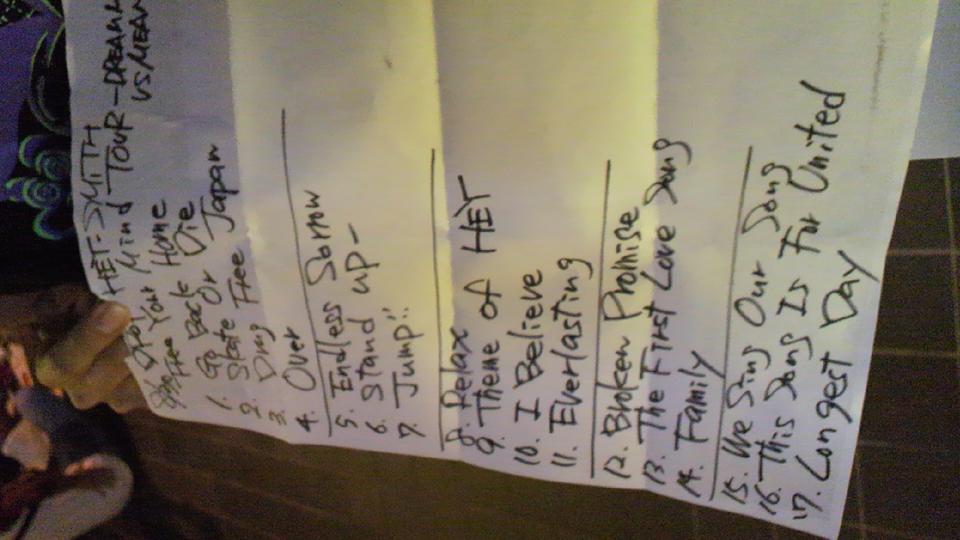 HEY-SMITH
Free Your Mind TOUR -DREAM
VS MEAN
Go Back Home
1. State Or Die
2. Drug Free Japan
3. Over
4.
5. Endless Sorrow
6. Stand up -
7. Jump!!
8. Relax
9. Theme of HEY
10. I Believe
11. Everlasting
12. Broken Promise
13. The First Love Song
14. Family
15. We Sing Our Song
16. This Song Is For United
17. Longest Day